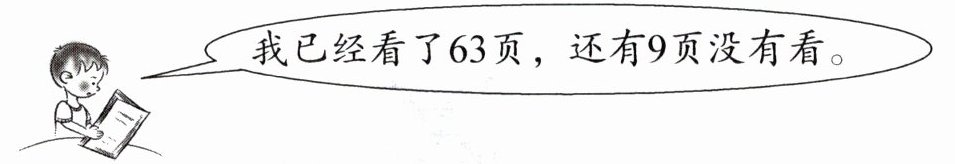 我已经看了63页，还有9页没有看。